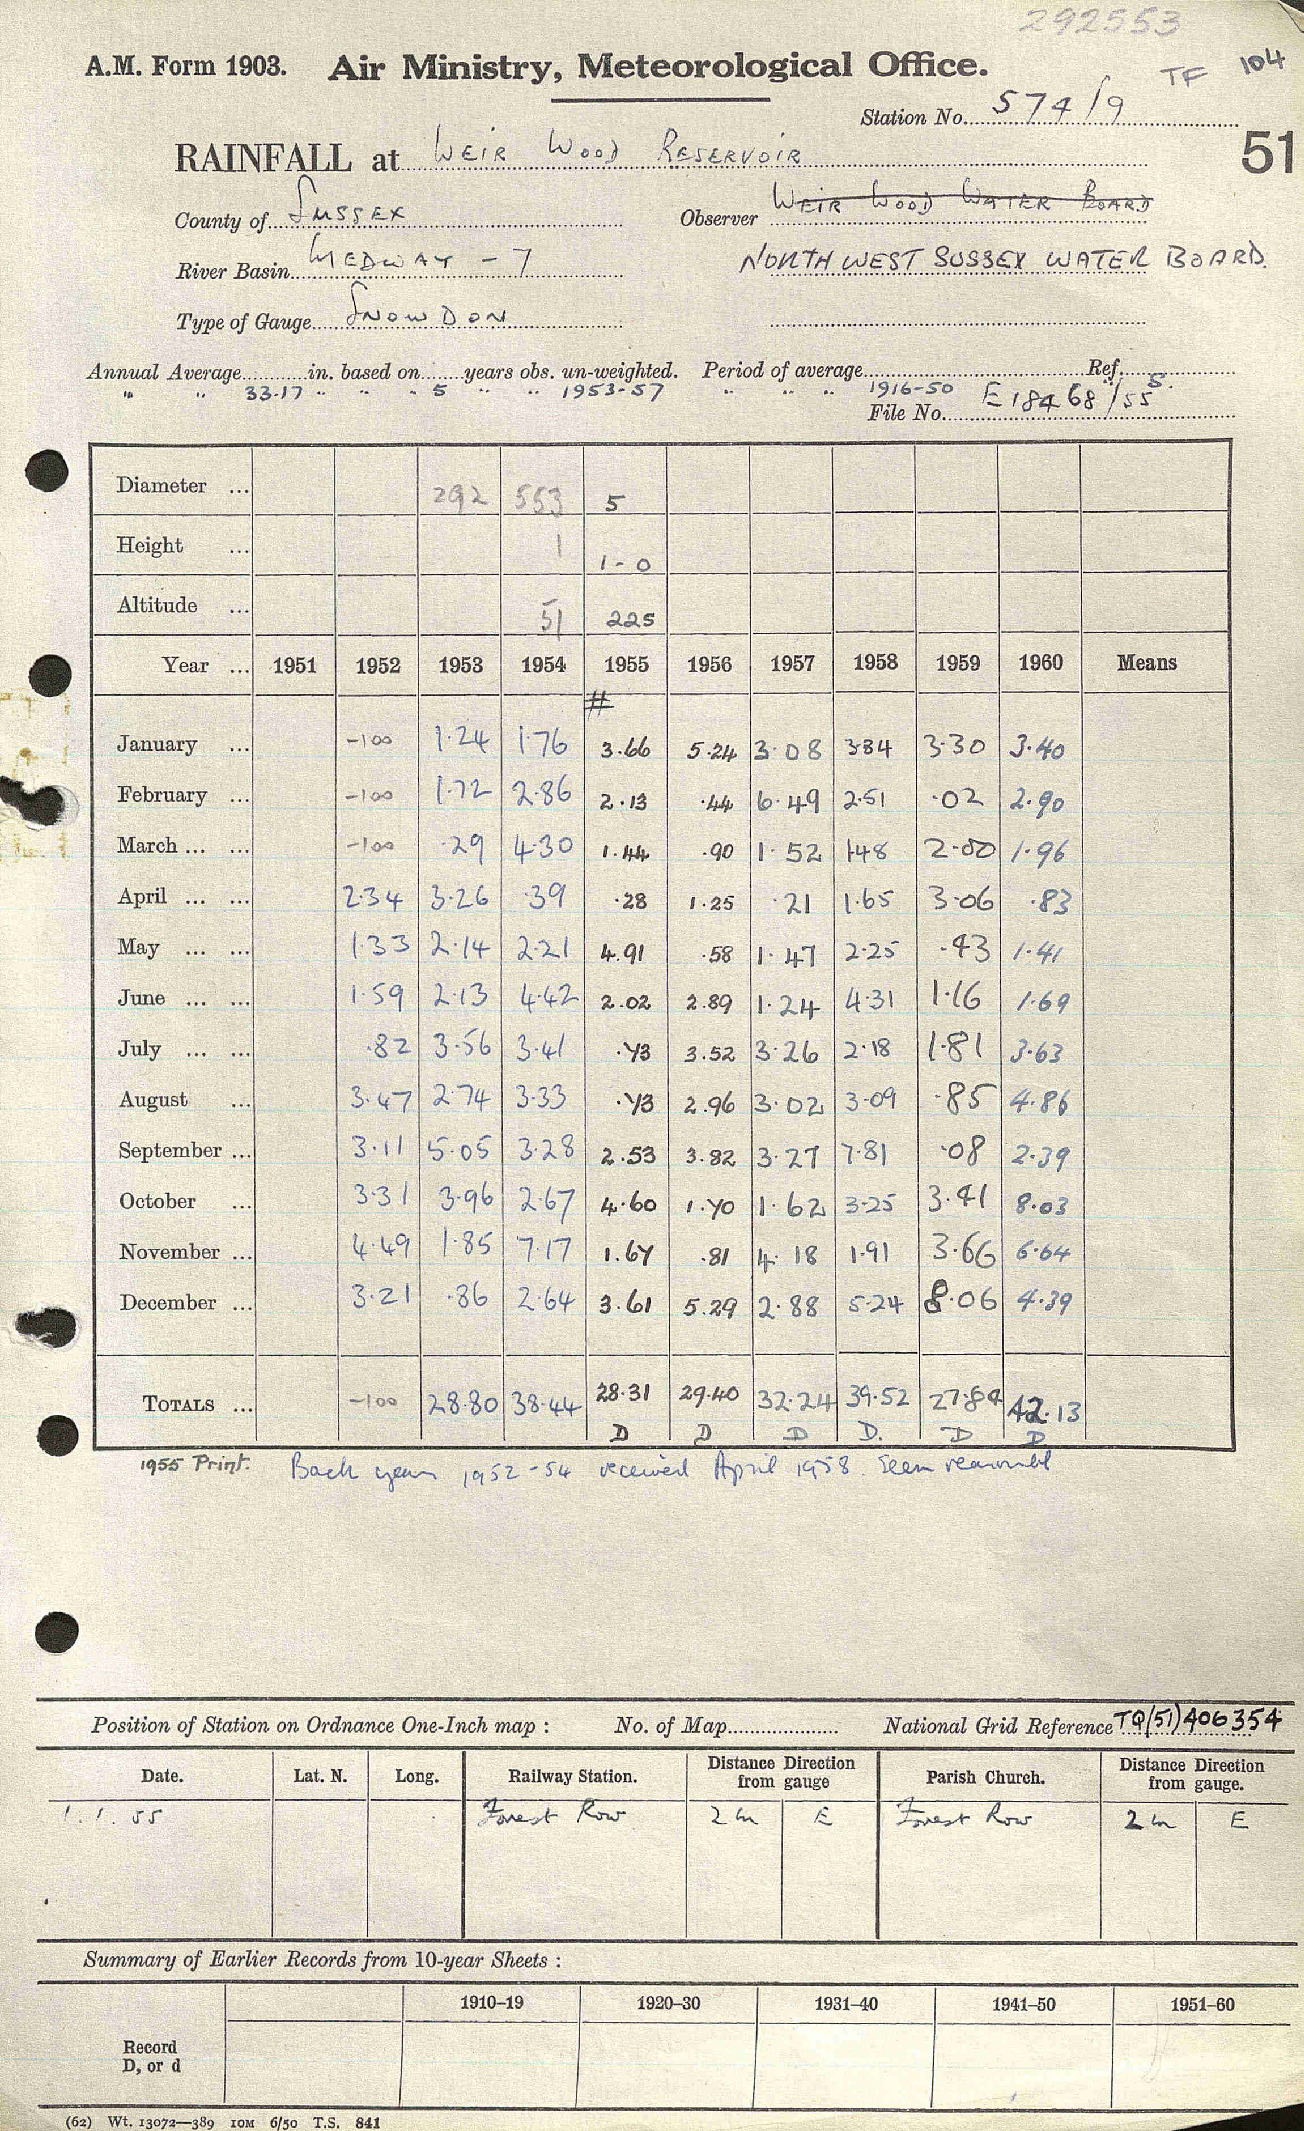 292553
A.M. Form 1903. Air Ministry, Meteorological Office. TF 104
Station No. 574/9
51
RAINFALL at WEIR WOOD RESERVOIR
County of SUSSEX Observer WEIR WOOD WATER BOARD
River Basin MEDWAY - 7 NORTH WEST SUSSEX WATER BOARD.
Type of Gauge SNOWDON
Annual Average in. based on years obs. un-weighted. Period of average Ref.
" " 33.17 " " " 5 " " 1953-57 " " " 1916-50 " S.
File No. E 18468/55
Diameter ... 292 553 5
Height ... 1 1-0
Altitude ... 51 225
Year ... 1951 1952 1953 1954 1955 1956 1957 1958 1959 1960 Means
#
January ... -100 1.24 1.76 3.66 5.24 3.08 3.84 3.30 3.40
February ... -100 1.72 2.86 2.13 .44 6.49 2.51 .02 2.90
March ... ... -100 .29 4.30 1.44 .90 1.52 1.48 2.00 1.96
April ... ... 2.34 3.26 .39 .28 1.25 .21 1.65 3.06 .83
May ... ... 1.33 2.14 2.21 4.91 .58 1.47 2.25 .43 1.41
June ... ... 1.59 2.13 4.42 2.02 2.89 1.24 4.31 1.16 1.69
July ... ... .82 3.56 3.41 .73 3.52 3.26 2.18 1.81 3.63
August ... 3.47 2.74 3.33 .73 2.96 3.02 3.09 .85 4.86
September ... 3.11 5.05 3.28 2.53 3.82 3.27 7.81 .08 2.39
October ... 3.31 3.96 2.67 4.60 1.70 1.62 3.25 3.41 8.03
November ... 4.49 1.85 7.17 1.67 .81 4.18 1.91 3.66 6.64
December ... 3.21 .86 2.64 3.61 5.29 2.88 5.24 8.06 4.39
TOTALS ... -100 28.80 38.44 28.31 29.40 32.24 39.52 27.84 42.13
D D D D. D D
1955 Print. Back years 1952-54 received April 1958. Seem reasonable
Position of Station on Ordnance One-Inch map : No. of Map National Grid Reference TQ(51)406354
Date. Lat. N. Long. Railway Station. Distance from gauge Direction Parish Church. Distance from gauge. Direction
1. 1. 55 Forest Row 2 m E Forest Row 2 m E
Summary of Earlier Records from 10-year Sheets :
1910-19 1920-30 1931-40 1941-50 1951-60
Record
D, or d
(62) Wt. 13072—389 10M 6/50 T.S. 841